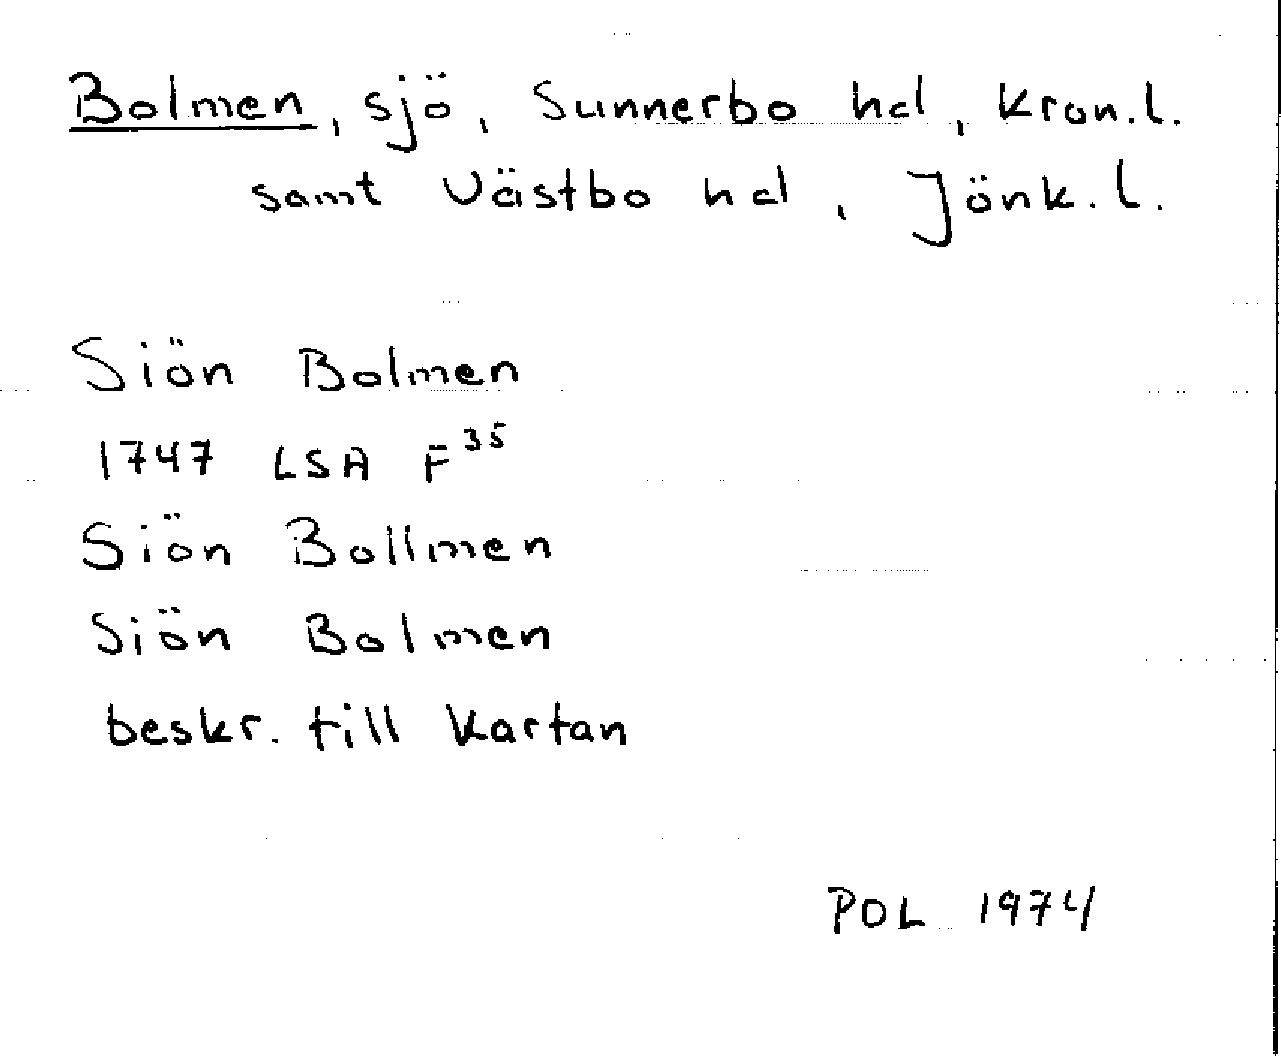 Bolmen, sjö, Sunnerbo hd, Kron.l.
samt Västbo hd, Jönk.l.
Siön Bolmen
1747 LSA F³⁵
Siön Bollmen
Siön Bolmen
beskr. till kartan
POL 1974